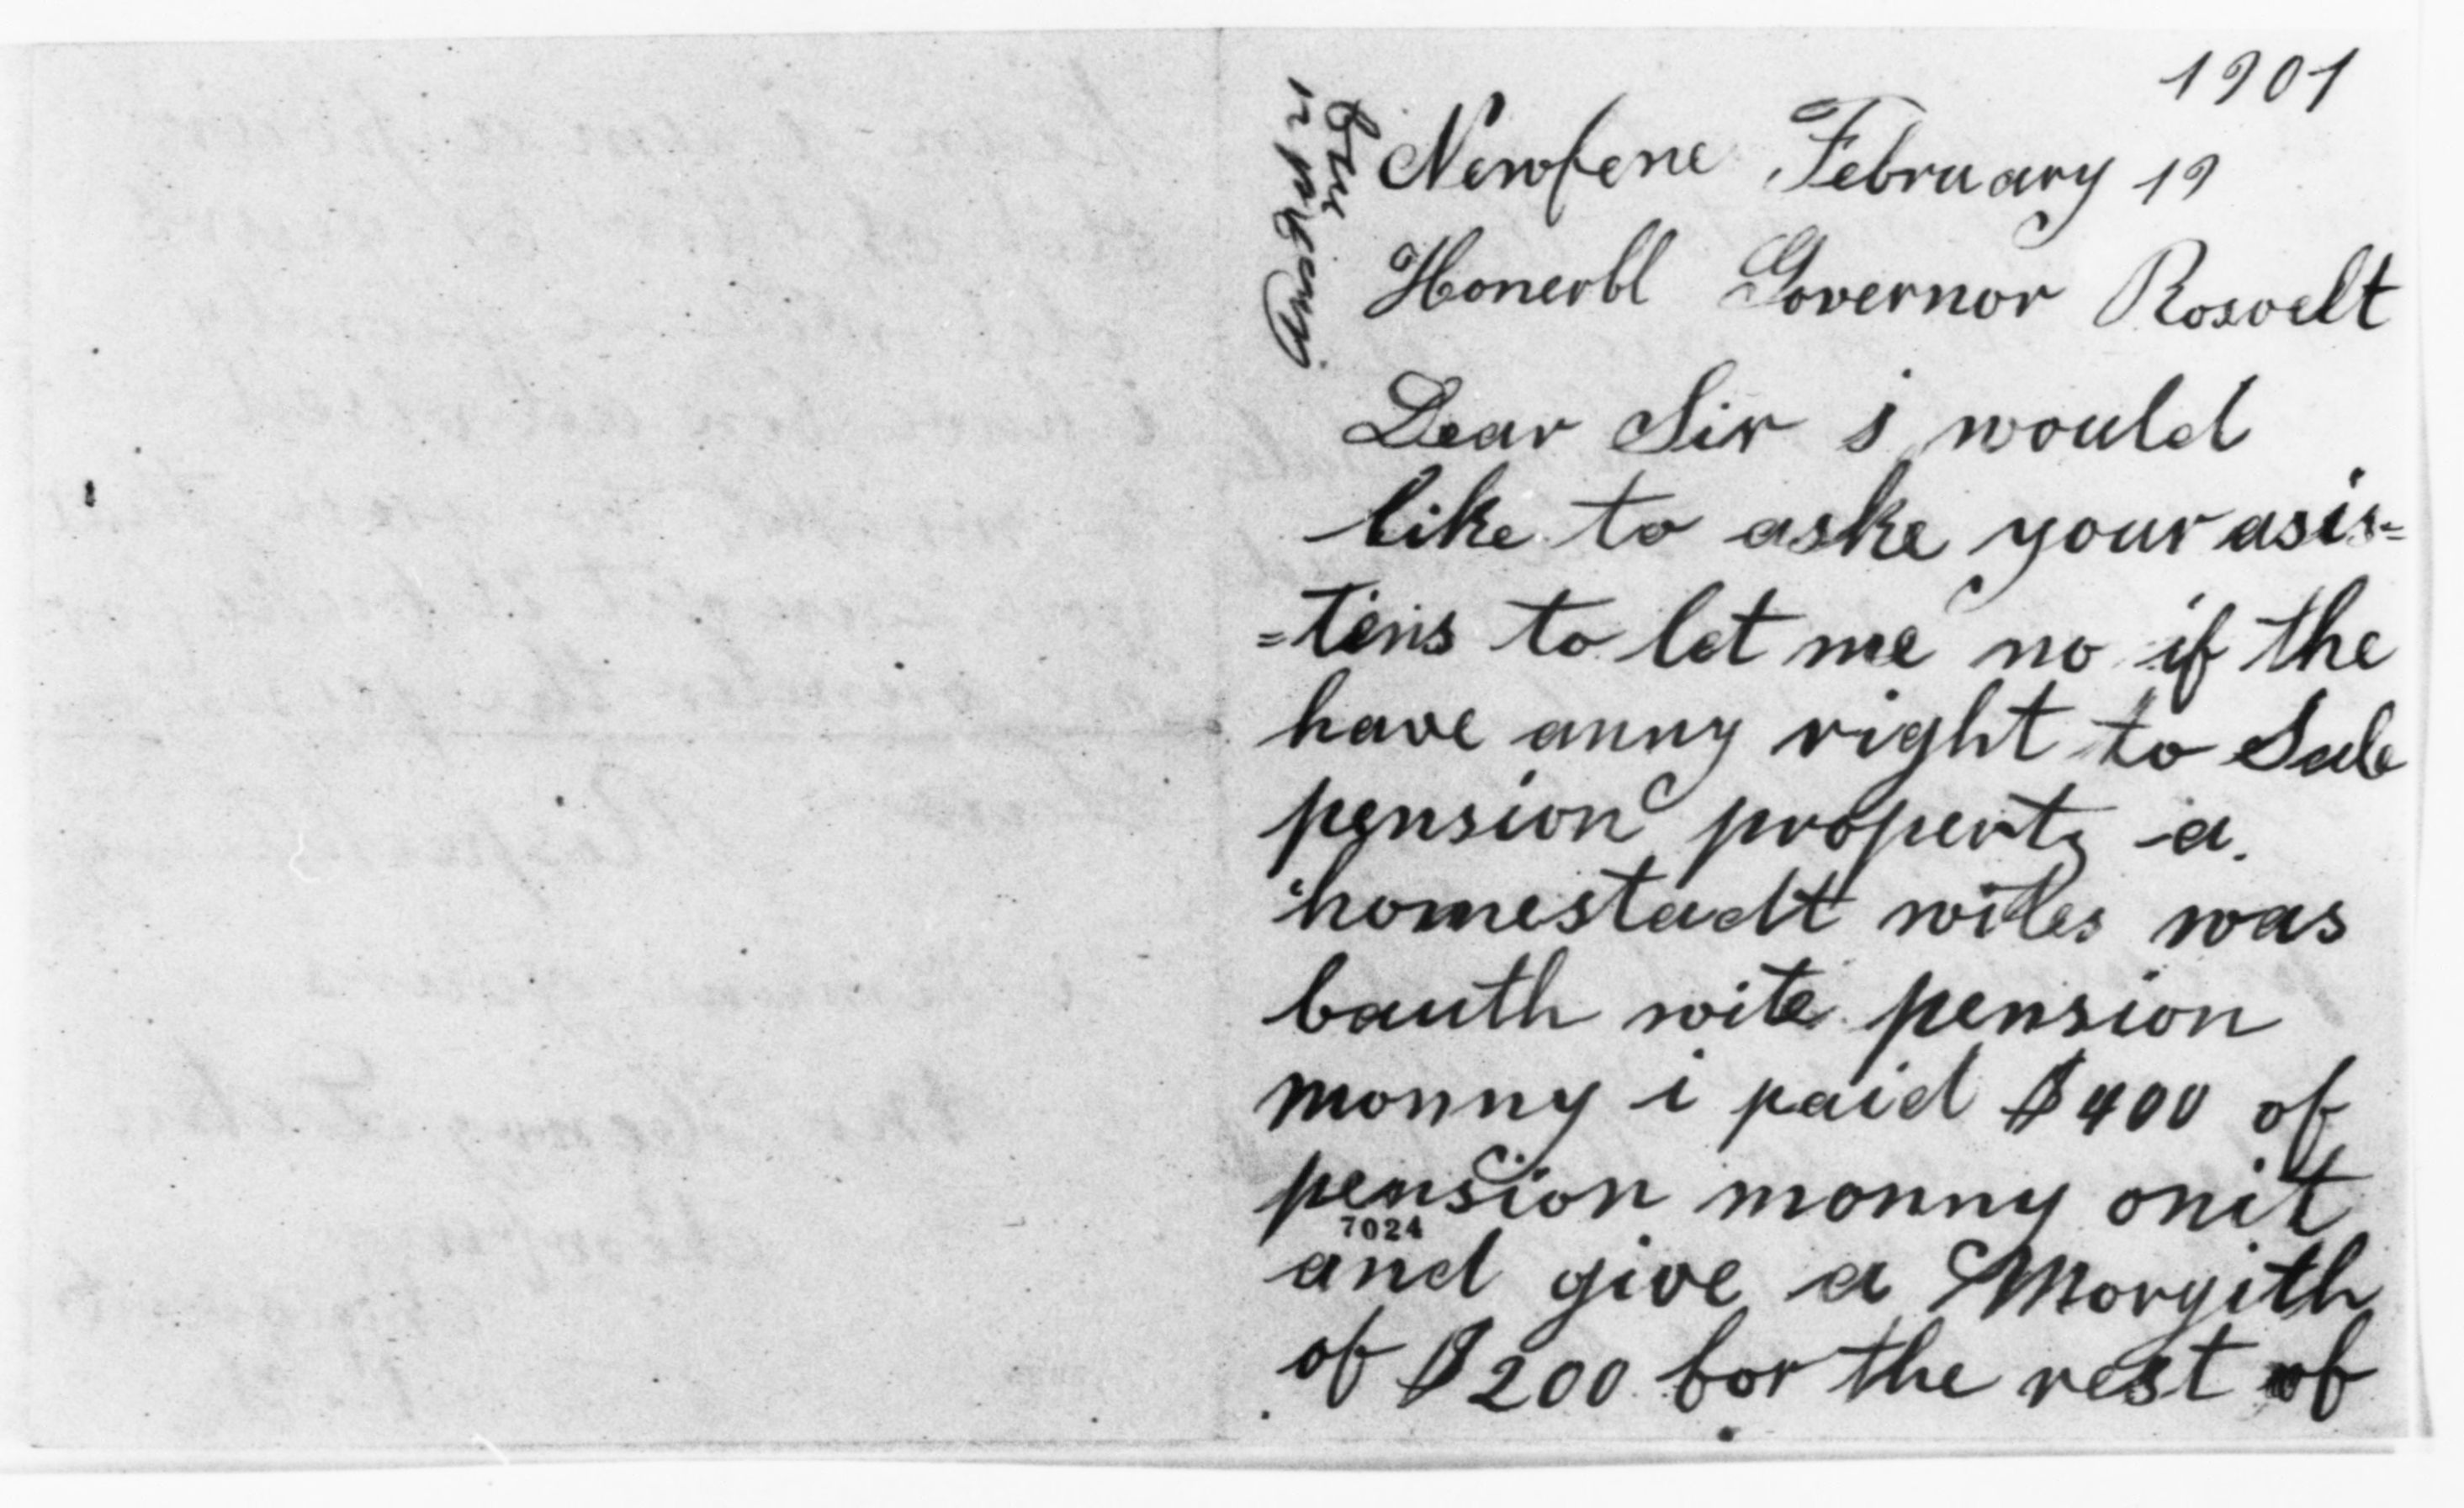 1901
Newfene February 19
Honerbl Governor Rosvelt
Dear Sir i would
like to aske your asis=
=tens to let me no if the
have anny right to Sale
pension property a
homestadt wiles was
bauth wite pension
monny i paid $400 of
pension monny onit
7024
and give a Morgith
of $200 for the rest of